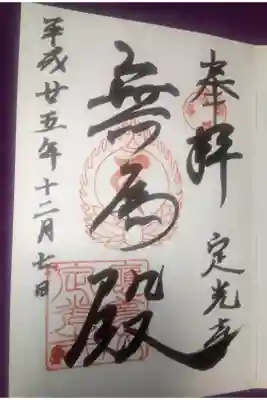 奉拝 定光寺
無為殿
平成廿五年十二月七日